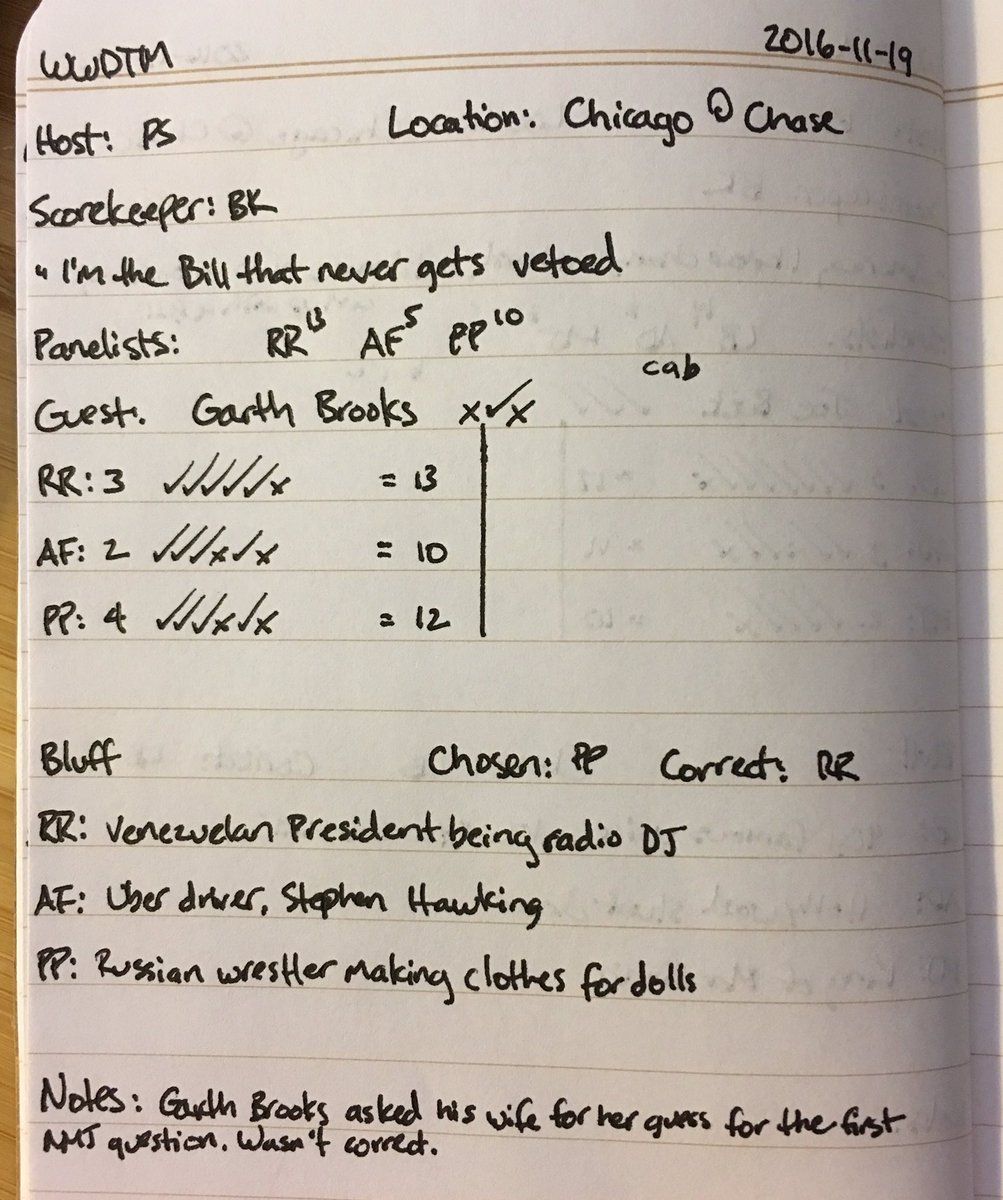 WWDTM 2016-11-19
Host: PS Location: Chicago @ Chase
Scorekeeper: BK
" I'm the Bill that never gets vetoed
Panelists: RR 13 AF 5 PP 10
cab
Guest. Garth Brooks x✓x
RR: 3 ✓✓✓✓✓x = 13
AF: 2 ✓✓✓x✓x = 10
PP: 4 ✓✓✓x✓x = 12
Bluff Chosen: PP Correct: RR
RR: Venezuelan President being radio DJ
AF: Uber driver, Stephen Hawking
PP: Russian wrestler making clothes for dolls
Notes: Garth Brooks asked his wife for her guess for the first
NMJ question. Wasn't correct.